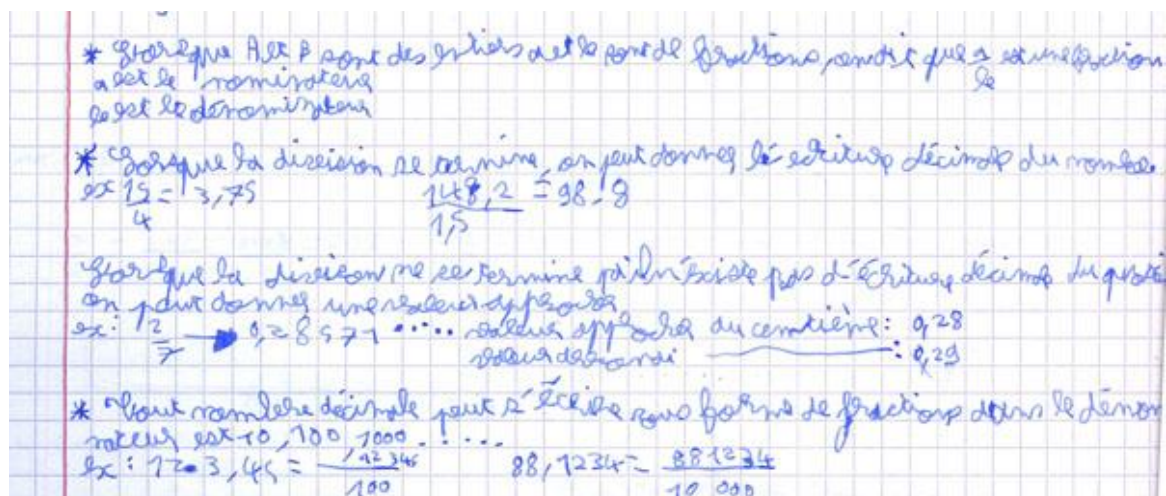 * Lorsque A et B sont des entiers et le sont de fractions, on dit que a/b est une fraction
a est le nominateur
b est le dénominateur
* Lorsque la division se termine, on peut donner l'écriture décimale du nombre
ex 15/4 = 3,75 148,2/1,5 = 98,8
Lorsque la division ne se termine pas il n'existe pas d'écriture décimale du
on peut donner une valeur approchée
ex: 2/7 → 0,28571 ..... valeur approchée au centième : 0,28
valeur d'arrondi : 0,29
* Tout nombre décimale peut s'écrire sous forme de fractions dans le dénomi
nateur est 10, 100, 1000 .....
ex : 123,45 = 12345/100 88,1234 = 881234/10 000